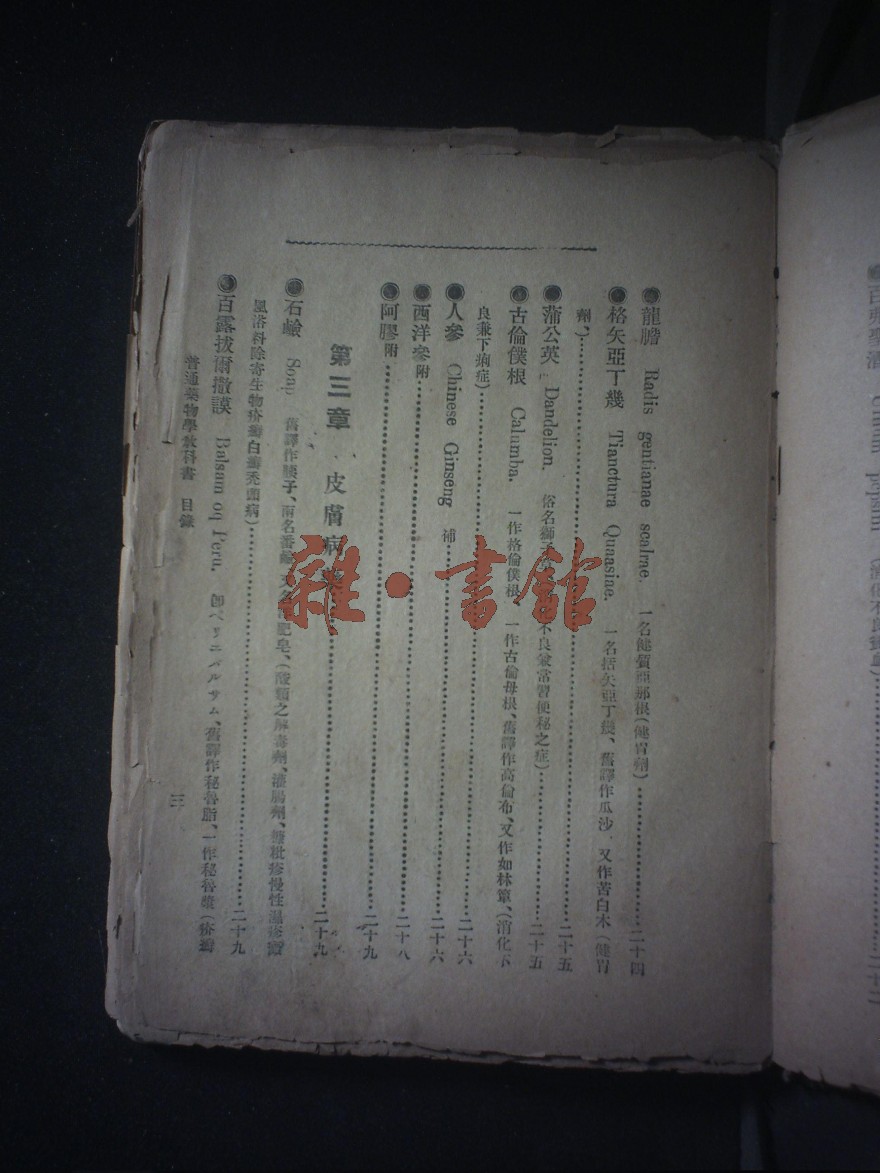 ●龍膽 Radis gentianae scalrae. 一名健質亞那根(健胃劑)……二十四
●格矢亞丁幾 Tianctura Quaasiae. 一名括矢亞丁幾、舊譯作瓜沙、又作苦白木(健胃
劑、)……二十五
●蒲公英 Dandelion. 俗名獅子 不良兼常習便秘之症)……二十五
●古倫僕根 Calumba. 一作格倫僕根、一作古倫母根、舊譯作高倫布、又作如林簞、(消化不
良兼下痢症)……二十六
●人參 Chinese Ginseng 補……二十六
●西洋參附……二十八
●阿膠附……二十九
第三章 皮膚病……二十九
●石鹼 Soap 舊譯作胰子、又名 肥皂、(酸類之解毒劑、灌腸劑、慢性濕疹
風浴料除寄生物疥癬白癬禿菌病)……二十九
●百露拔爾撒謨 Balsam oq Peru. 即ペリユバルサム、舊譯作秘魯脂、一作秘魯 (疥癬
普通藥物學教科書 目錄
三
雜·書館